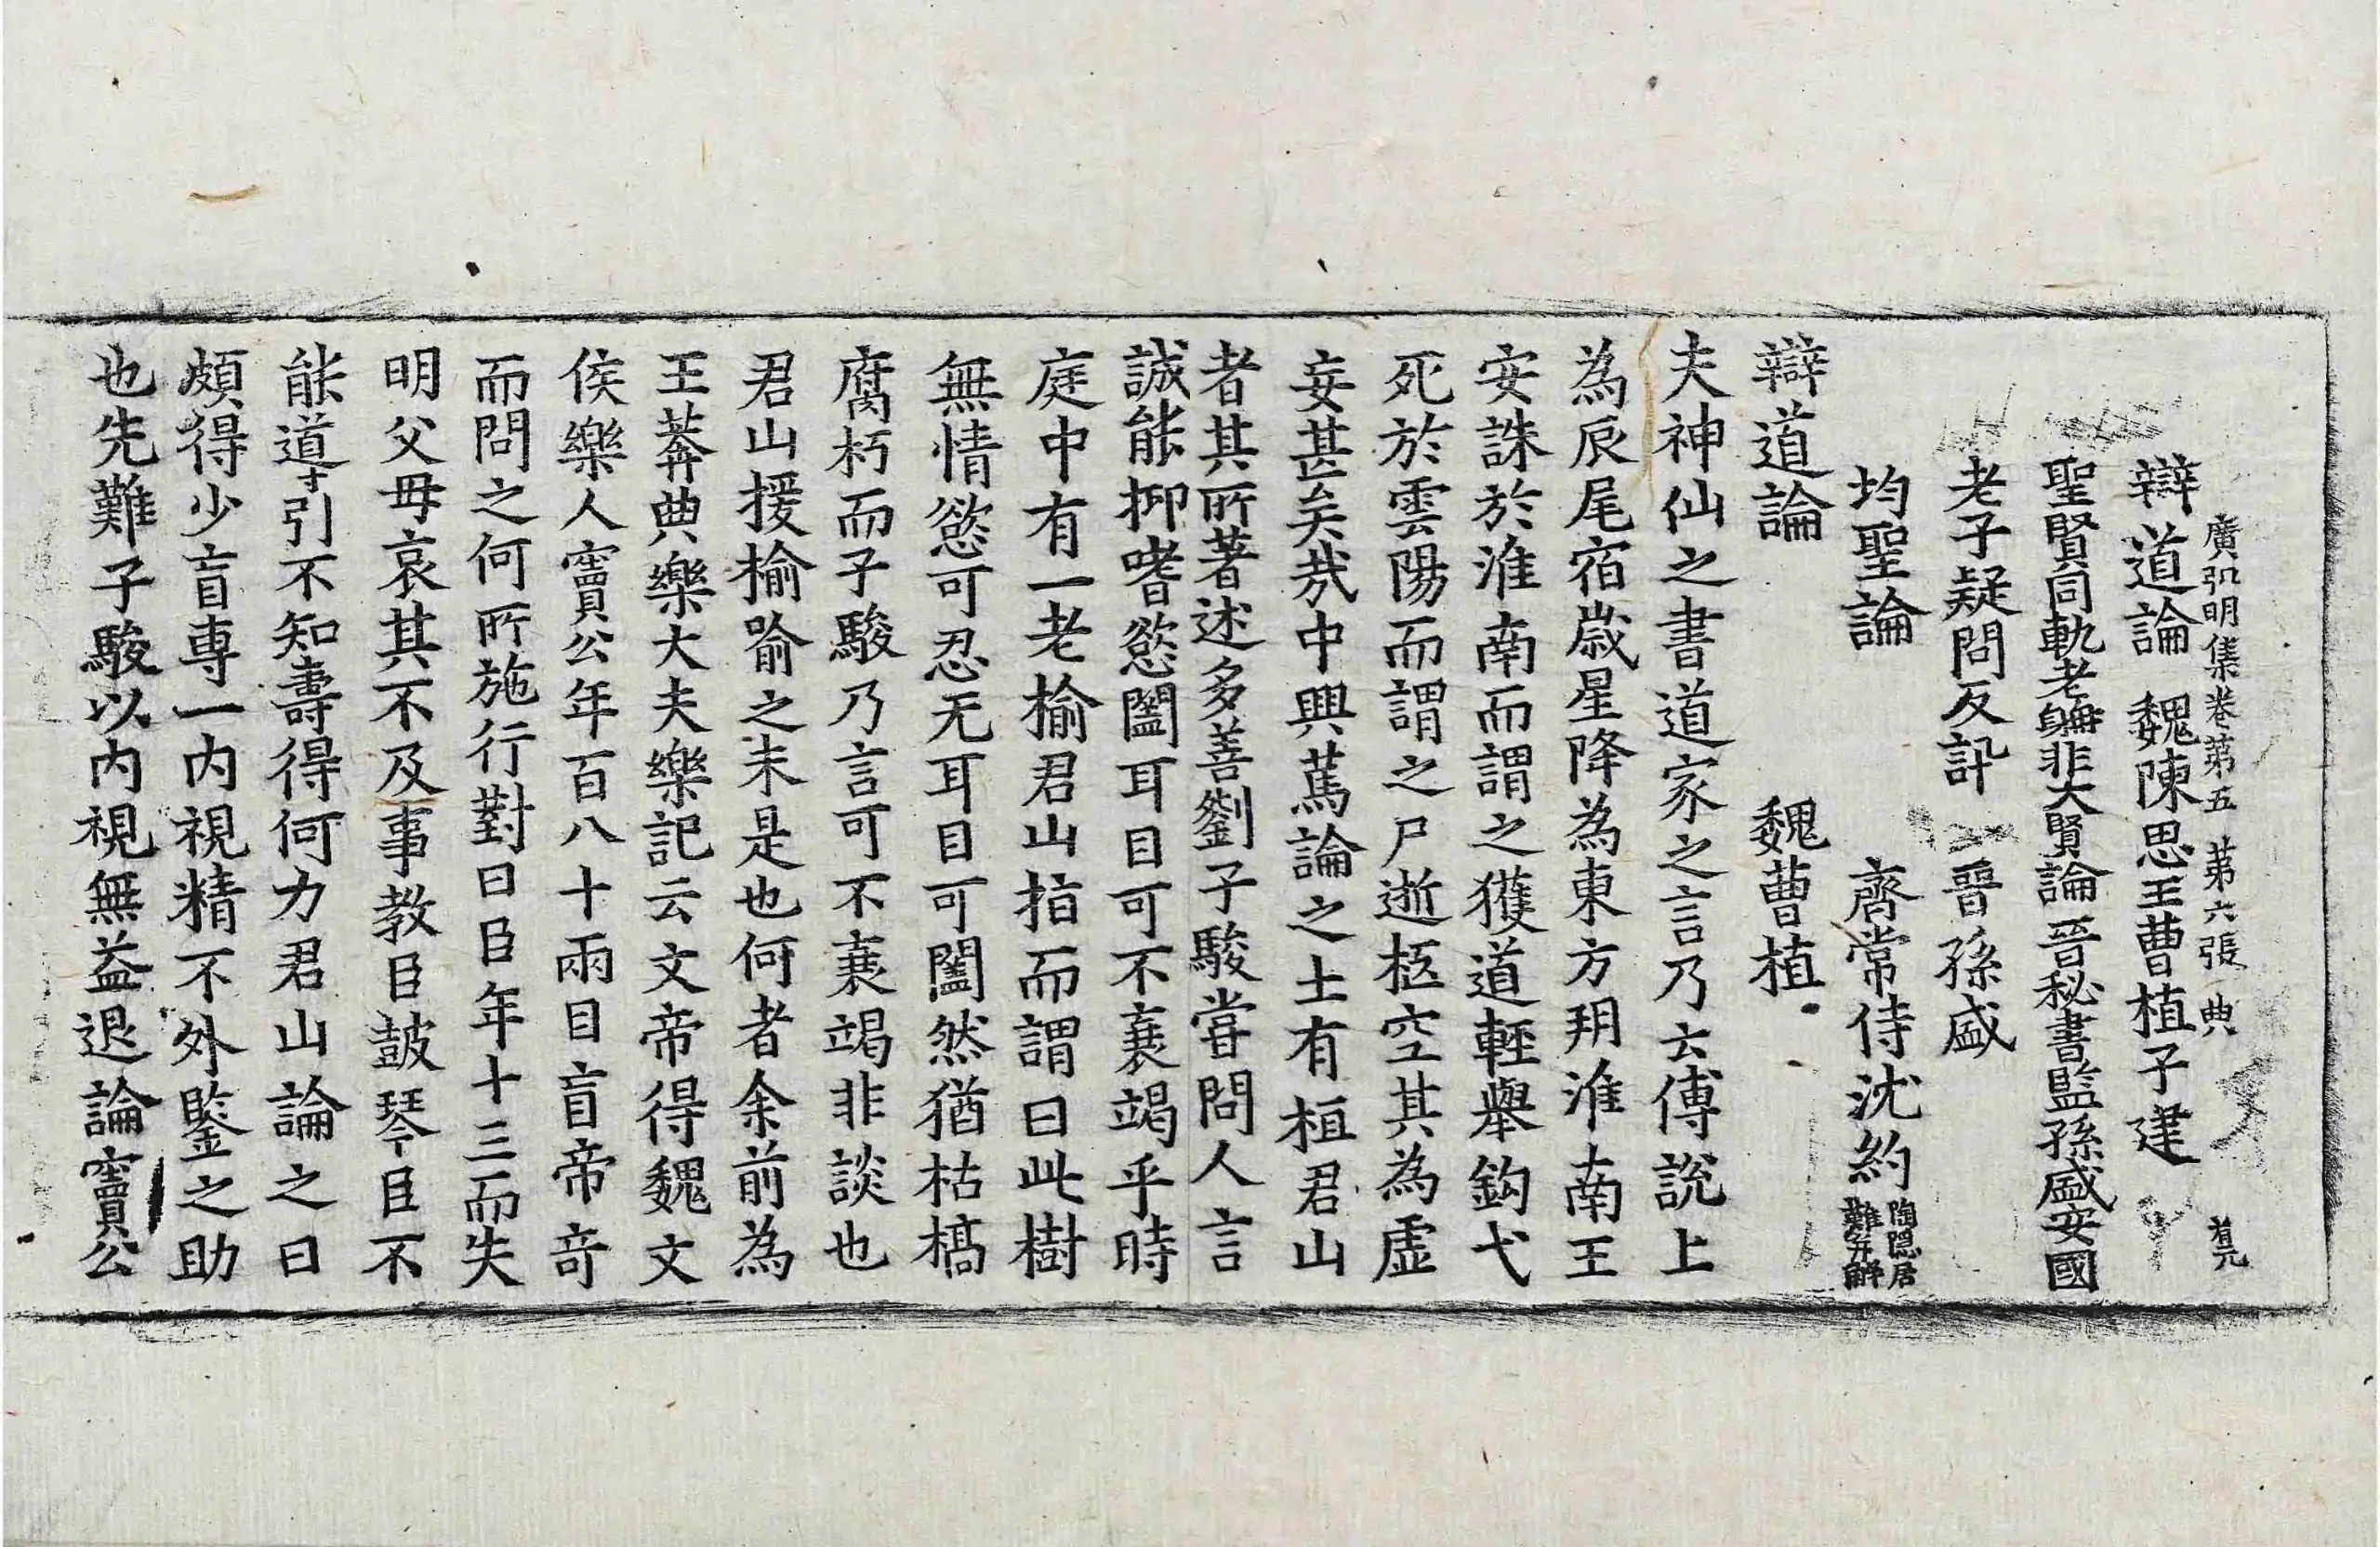 廣弘明集卷第五 第六張 典
辯道論 魏陳思王曹植子建
聖賢同軌老聃非大賢論 晉秘書監孫盛安國
老子疑問反訊 晉孫盛
均聖論 齊常侍沈約 陶隱居難并解
辯道論 魏曹植
夫神仙之書道家之言乃云傅說上
為辰尾宿歲星降為東方朔淮南王
安誅於淮南而謂之獲道輕舉鈎弋
死於雲陽而謂之尸逝柩空其為虛
妄甚矣㢤中興篤論之士有桓君山
者其所著述多善劉子駿甞問人言
誠能抑嗜慾闔耳目可不衰竭乎時
庭中有一老榆君山指而謂曰此樹
無情慾可忍无耳目可闔然猶枯槁
腐朽而子駿乃言可不衰竭非談也
君山援榆喻之未是也何者余前為
王莽典樂大夫樂記云文帝得魏文
侯樂人竇公年百八十兩目盲帝奇
而問之何所施行對曰臣年十三而失
明父母哀其不及事教臣鼓琴臣不
能導引不知壽得何力君山論之曰
頗得少盲專一內視精不外鑒之助
也先難子駿以內視無益退論竇公